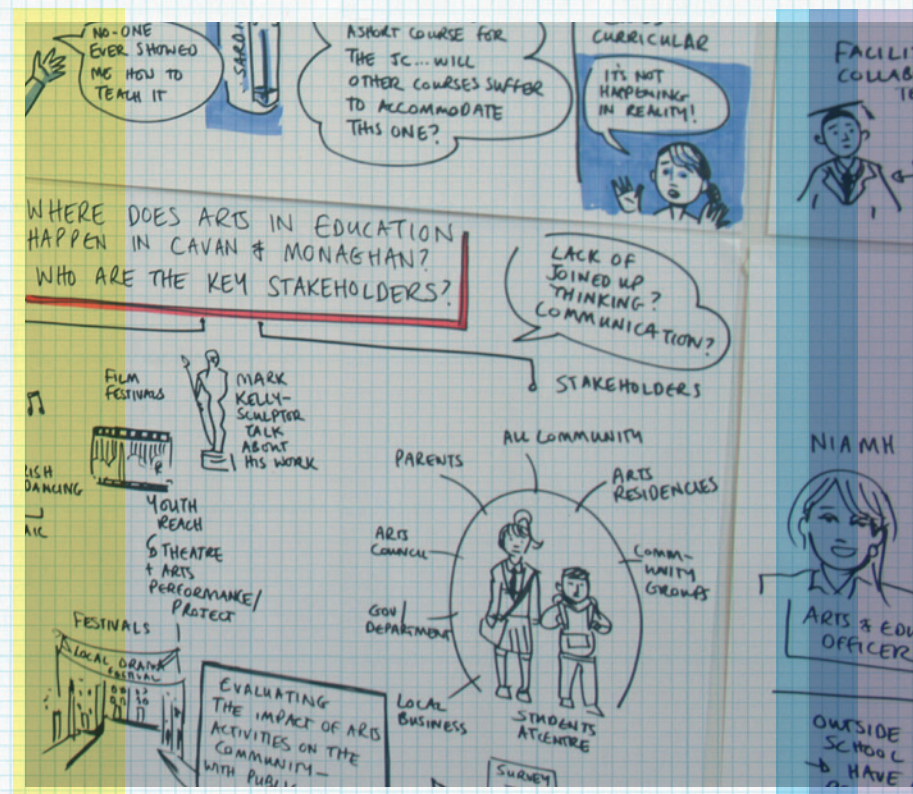 NO-ONE
EVER SHOWED
ME HOW TO
TEACH IT
A SHORT COURSE FOR
THE JC... WILL
OTHER COURSES SUFFER
TO ACCOMMODATE
THIS ONE?
CURRICULAR
IT'S NOT
HAPPENING
IN REALITY!
WHERE DOES ARTS IN EDUCATION
HAPPEN IN CAVAN & MONAGHAN?
WHO ARE THE KEY STAKEHOLDERS?
LACK OF
JOINED UP
THINKING?
COMMUNICATION?
STAKEHOLDERS
FILM
FESTIVALS
MARK
KELLY-
SCULPTOR
TALK
ABOUT
HIS WORK
DANCING
YOUTH
REACH
& THEATRE
+ ARTS
PERFORMANCE/
PROJECT
FESTIVALS
LOCAL DRAMA
FESTIVAL
EVALUATING
THE IMPACT OF ARTS
ACTIVITIES ON THE
COMMUNITY-
WITH
ALL COMMUNITY
PARENTS
ARTS
RESIDENCIES
ARTS
COUNCIL
COMM-
UNITY
GROUPS
GOV/
DEPARTMENT
LOCAL
BUSINESS
STUDENTS
AT CENTRE
SURVEY
NIAMH
ARTS &
OFFICER
OUTSIDE
SCHOOL
→ HAVE